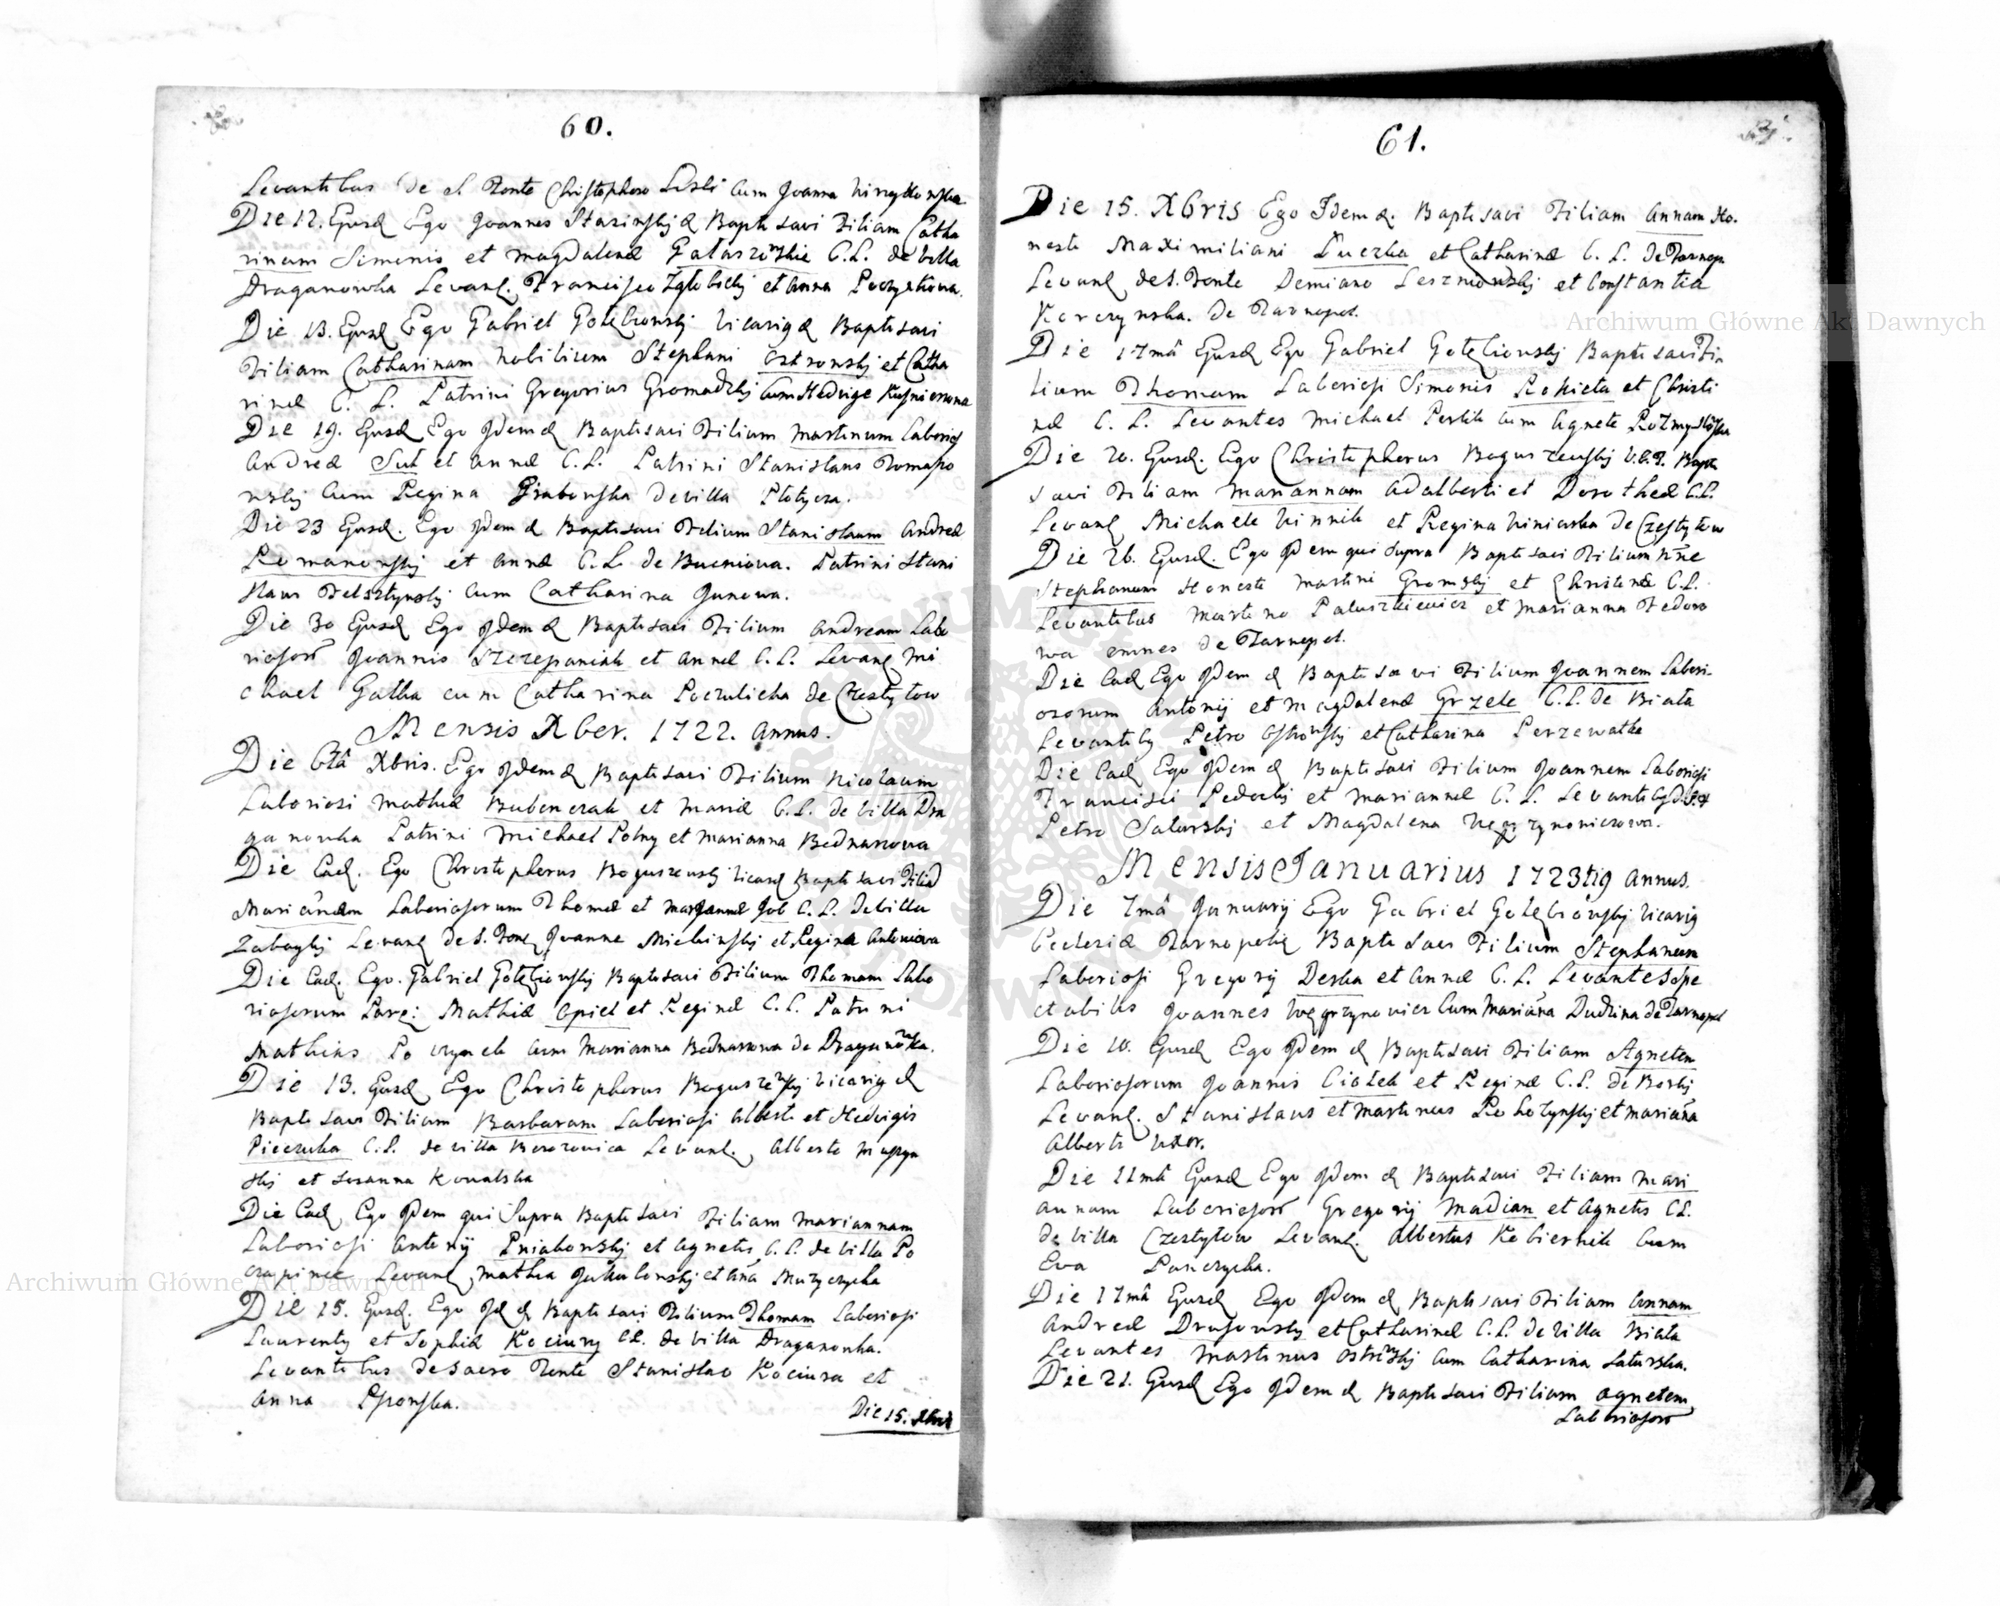 60.
Levantibus de S. Fonte Christophoro Liski cum Joanna
Die 12. Ejusd Ego Joannes Stasinskj & Baptisavi Filiam Catha
rinam Simonis et Magdalenæ Gałaszeskie C.L. de villa
Draganowka Levant. Francisco Zgłobickj et Anna Początkowa.
Die 13. Ejusd Ego Gabriel Gołębiowskj Vicarig & Baptisavi
Filiam Catharinam Nobilium Stephani Ostrowskj et Catha
rinæ C. L. Patrini Gregorius Gromadzkj cum Hedvige Kuśnierowna
Die 19. Ejusd Ego Idem & Baptisavi Filium Martinum Laboriosj
Andreæ Sut et Annæ C.L. Patrini Stanislaus Tomaszo
wskj Cum Regina Grabowska de villa Płotycza.
Die 23 Ejusd. Ego Idem & Baptisavi Filium Stanislaum Andreæ
Romanowskj et Annæ C.L. de Bucniowa. Patrini Stani
slaus Felsztynskj Cum Catharina Junowa.
Die 30 Ejusd Ego Idem & Baptisavi Filium Andream Labo
riosorū Joannis Szczepaniak et Annæ C.L. Levant Mi
chael Gałka cum Catharina de Czestyłow
Mensis Xber. 1722. Annus.
Die 6tâ Xbris. Ego Idem & Baptisavi Filium Nicolaum
Laboriosi Mathiæ Bubenczak et Mariæ C.L. de Villa Dra
ganowka Patrini Michael Polny et Marianna Bednarzowa
Die Ead. Ego Christophorus Boguszewskj Vicarig Baptisavi Filiā
Mariānam Laboriosorum Thomæ et Mariannæ Job C.L. de villa
Zaboykj Levant de S. Fonte Joanne Michinskj et Regina Antoniowa
Die Ead. Ego Gabriel Gołębiowskj Baptisavi Filium Thomam Labo
riosorum Mathiæ Opiel et Reginæ C.L. Patrini
Mathias cum Marianna Bednarzowa de Draganowka.
Die 13. Ejusd Ego Christophorus Boguszewskj Vicarig &
Baptisavi Filiam Barbaram Laboriosi Alberti et Hedvigis
Pieczuka C.L. de villa Berezowica Levant. Alberto
skj et Susanna Kowalska
Die Ead. Ego Idem qui Supra Baptisavi Filiam Mariannam
Laboriosi Antonij Pniakowskj et Agnetis C.L. de villa Po
czapince Levant, Mathia Jakubowskj et Aña Muzyczycha
Die 15. Ejusd. Ego Id & Baptisavi Filium Thomam Laboriosi
Laurentij et Sophiæ Kociury CL. de villa Draganowka.
Levantibus de Sacro Fonte Stanislao Kociura et
Anna
Die 15. Xbris
61.
Die 15. Xbris Ego Idem &. Baptisavi Filiam Annam Ho.
nesti Maximiliani Łuczka et Catharinæ C. L. De Tarnop.
Levant de S. Fonte Demiano Lesznowskj et Constantia
Korczynska. De Tarnopol.
Die 17mâ Ejusd Ego Gabriel Gołębiowskj Baptisavi Fi
lium Thomam Laboriosi Simonis Rokieta et Christi
næ C. L. Levantes Michael Pertik cum Agnete
Die 20. Ejusd. Ego Christophorus Boguszewskj V.E.T. Bapti
savi Filiam Mariannam Adalberti et Dorotheæ C.L.
Levant Michaele Winnik et Regina Winiarka de Czestyłow
Die 26. Ejusd. Ego Idem qui supra Baptisavi Filium nñe
Stephanum Honesti Martini Gromskj et Christinæ C.L.
Levantibus Martino Paluszkiewicz et Marianna Fedoro
wa omnes de Tarnopol.
Die Ead Ego Idem & Baptisavi Filium Joannem Labori-
osorum Antonij et Magdalenæ Grzele C.L. de Biała
Levantibg Petro Ostrowskj et Catharina Perzewalka
Die Ead Ego Idem & Baptisavi Filium Joannem Laboriosj
Francisci Pedeckj et Mariannæ C. L. Levantibg d.S.F
Petro Saturskj et Magdalena Węgrzynowiczowa.
Mensis Januarius 1723tig Annus.
Die 7mâ Januarij Ego Gabriel Gołębiowskj Vicarig
Ecclesiæ Tarnopolig Baptisavi Filium Stephanum
Laboriosi Gregorij Deska et Annæ C. L. Levantes Spe
ctabilis Joannes Węgrzynowicz Cum Mariāna Dudzina de Tarnopol
Die 10. Ejusd Ego Idem & Baptisavi Filiam Agnetem
Laboriosorum Joannis Ciołek et Reginæ C.L. de Borkj
Levant. Stanislaus et Martinus et Mariāna
Alberti Uxor.
Die 11mâ Ejusd Ego Idem & Baptisavi Filiam Mari
annam Laboriosorū Gregorij Madian et Agnetis CL.
de villa Czestyłow Levant. Albertus Kobiernik Cum
Eva Panczycha.
Die 17mâ Ejusd Ego Idem & Baptisavi Filiam Annam
Andreæ Drozowskj et Catharinæ C.L. de villa Biała
Levantes Martinus Ostrowskj Cum Catharina Saturska.
Die 21. Ejusd Ego Idem & Baptisavi Filiam Agnetem
Laboriosorū
Archiwum Główne Akt Dawnych
Archiwum Główne Akt Dawnych
ARCHIWUM GŁÓWNE AKT DAWNYCH